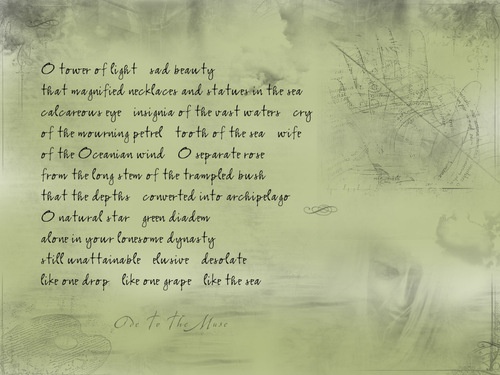 O tower of light sad beauty
that magnified necklaces and statues in the sea
calcareous eye insignia of the vast waters cry
of the mourning petrel tooth of the sea wife
of the Oceanian wind O separate rose
from the long stem of the trampled bush
that the depths converted into archipelago
O natural star green diadem
alone in your lonesome dynasty
still unattainable elusive desolate
like one drop like one grape like the sea
Ode to the Muse